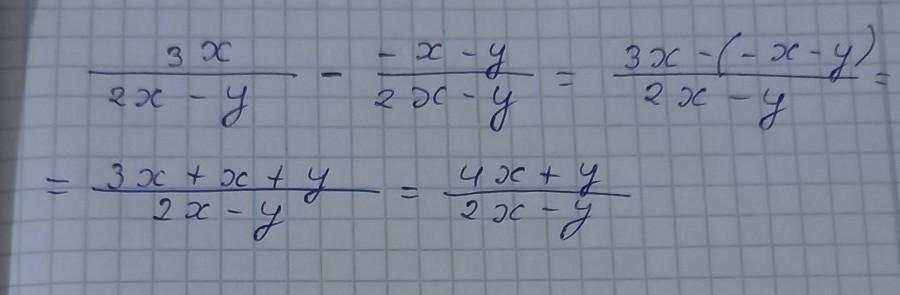 3x/(2x - y) - (-x - y)/(2x - y) = (3x - (-x - y))/(2x - y) =
= (3x + x + y)/(2x - y) = (4x + y)/(2x - y)